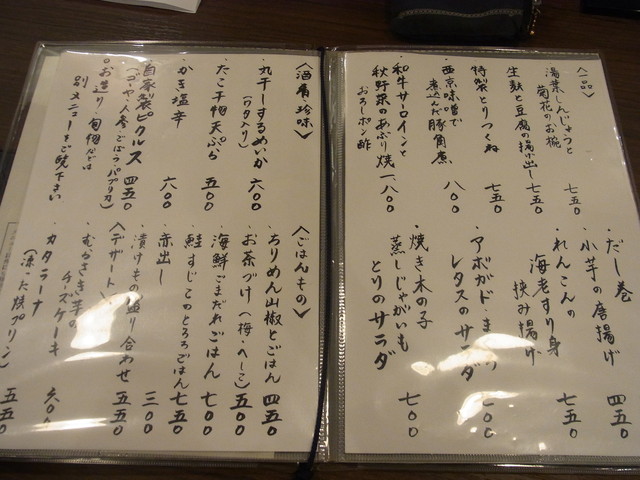 〈一品〉
湯葉しんじょうと
菊花のお椀 七五〇
生麩と豆腐の揚げ出し 七五〇
特製とりつくね 七五〇
西京味噌で
煮込んだ豚角煮 八〇〇
和牛サーロインと
秋野菜のあぶり焼 一、八〇〇
おろしポン酢
だし巻 四五〇
小芋の唐揚げ
れんこんの
海老すり身
挟み揚げ 七五〇
アボガド・ま
レタスのサラダ 〇〇
焼き木の子
蒸しじゃがいも
とりのサラダ 七〇〇
〈酒肴・珍味〉
丸干しするめいか
(ワタ入り) 六〇〇
たこ干物天ぷら 五〇〇
かき塩辛 六〇〇
自家製ピクルス 四五〇
(ゴーヤ・人参・ごぼう・パプリカ)
お造り、旬物などは
別メニューをご覧下さい
〈ごはんもの〉
ちりめん山椒とごはん 四五〇
お茶づけ(梅・へしこ) 五〇〇
海鮮ごまだれごはん 七〇〇
鮭すじことろろごはん 七五〇
赤出し 三〇〇
漬けもの盛り合わせ 五五〇
〈デザート〉
むらさき芋の
チーズケーキ 六〇〇
カタラーナ
(凍った焼プリン) 五五〇